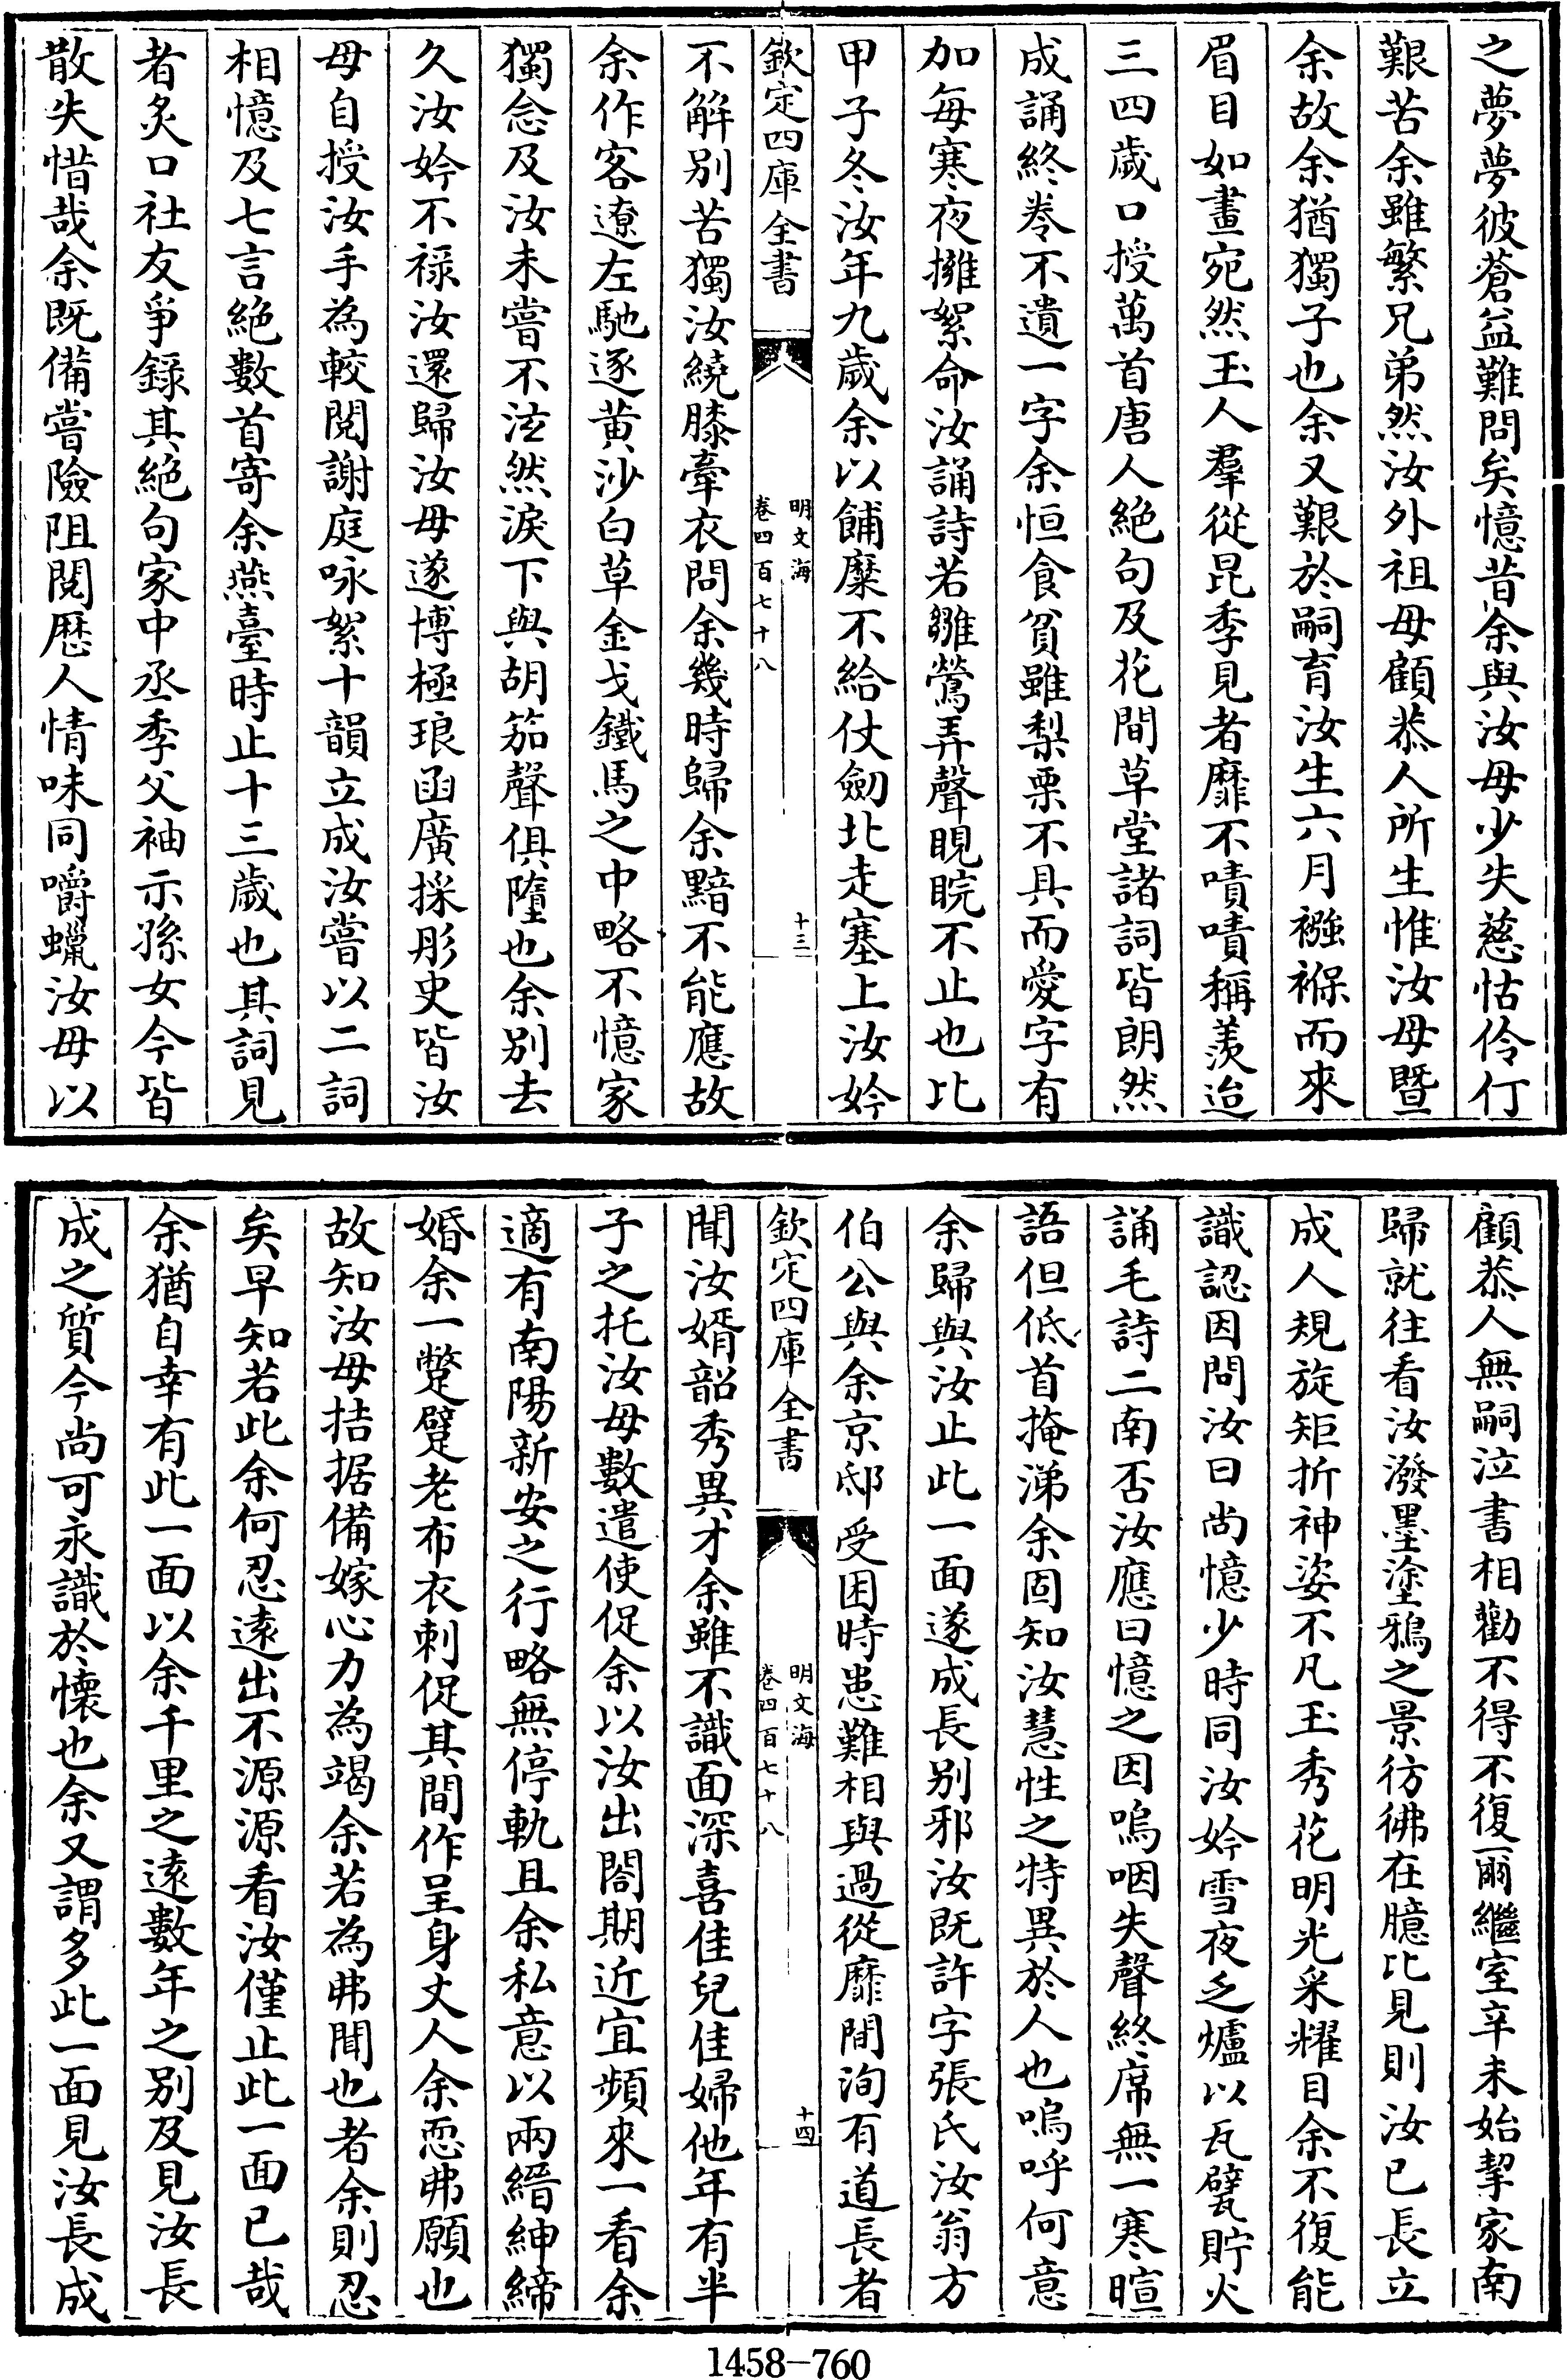 之夢夢彼蒼益難問矣憶昔余與汝母少失慈怙伶仃
艱苦余雖繁兄弟然汝外祖母顧恭人所生惟汝母暨
余故余猶獨子也余又艱於嗣育汝生六月襁褓而來
眉目如畫宛然玉人羣從昆季見者靡不嘖嘖稱羨迨
三四歲口授萬首唐人絕句及花間草堂諸詞皆朗然
成誦終卷不遺一字余恒食貧雖梨栗不具而愛字有
加每寒夜擁絮命汝誦詩若雛鶯弄聲睍睆不止也比
甲子冬汝年九歲余以餔糜不給仗劒北走塞上汝妗
欽定四庫全書
明文海
卷四百七十八
十三
不解别苦獨汝繞膝牽衣問余幾時歸余黯不能應故
余作客遼左馳逐黄沙白草金戈鐵馬之中略不憶家
獨念及汝未嘗不泫然淚下與胡笳聲俱墮也余别去
久汝妗不禄汝還歸汝母遂博極琅函廣採彤史皆汝
母自授汝手為較閱謝庭咏絮十韻立成汝嘗以二詞
相憶及七言絕數首寄余燕臺時止十三歲也其詞見
者炙口社友爭録其絕句家中丞季父袖示孫女今皆
散失惜哉余既備嘗險阻閱厯人情味同嚼蠟汝母以
顧恭人無嗣泣書相勸不得不復爾繼室辛未始挈家南
歸就往看汝潑墨塗鴉之景彷彿在臆比見則汝已長立
成人規旋矩折神姿不凡玉秀花明光采耀目余不復能
識認因問汝曰尚憶少時同汝妗雪夜乏爐以瓦甓貯火
誦毛詩二南否汝應曰憶之因嗚咽失聲終席無一寒暄
語但低首掩涕余固知汝慧性之特異於人也嗚呼何意
余歸與汝止此一面遂成長别邪汝既許字張氏汝翁方
伯公與余京邸受困時患難相與過從靡間洵有道長者
欽定四庫全書
明文海
卷四百七十八
十四
聞汝婿韶秀異才余雖不識面深喜佳兒佳婦他年有半
子之托汝母數遣使促余以汝出閤期近宜頻來一看余
適有南陽新安之行略無停軌且余私意以兩縉紳締
婚余一蹩躄老布衣刺促其間作呈身丈人余恧弗願也
故知汝母拮据備嫁心力為竭余若為弗聞也者余則忍
矣早知若此余何忍遠出不源源看汝僅止此一面已哉
余猶自幸有此一面以余千里之遠數年之别及見汝長
成之質今尚可永識於懷也余又謂多此一面見汝長成
1458-760